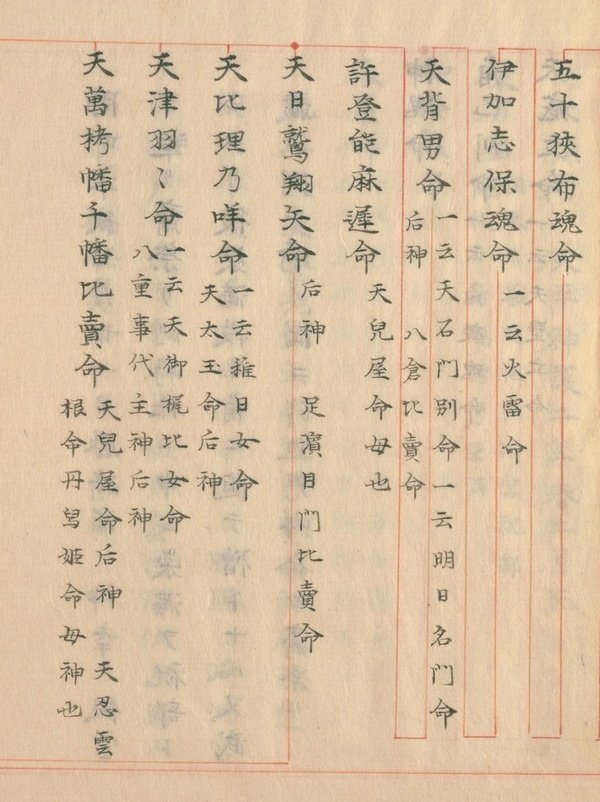 五十狹布魂命
伊加志保魂命 一云火雷命
天背男命 一云天石門別命一云明日名門命
后神 八倉比賣命
許登能麻遲命 天兒屋命母也
天日鷲翔矢命 后神 足濱目門比賣命
天比理乃咩命 一云稚日女命
天太玉命后神
天津羽〻命 一云天御梶比女命
八重事代主神后神
天萬栲幡千幡比賣命 天兒屋命后神 天忍雲
根命丹舄姬命母神也